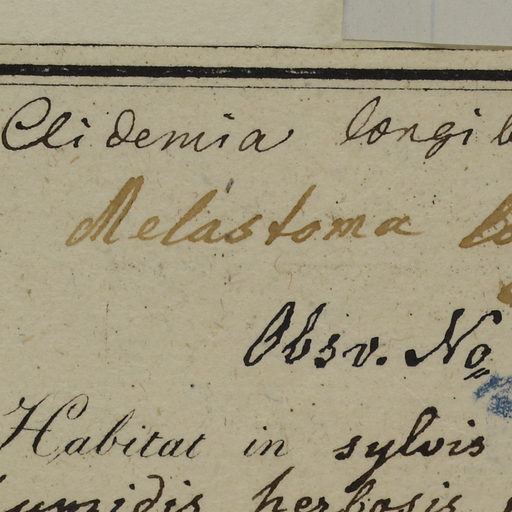 Clidemia longib
Melastoma lo
Obsv. No
Habitat in sylvis
umidis herbosis